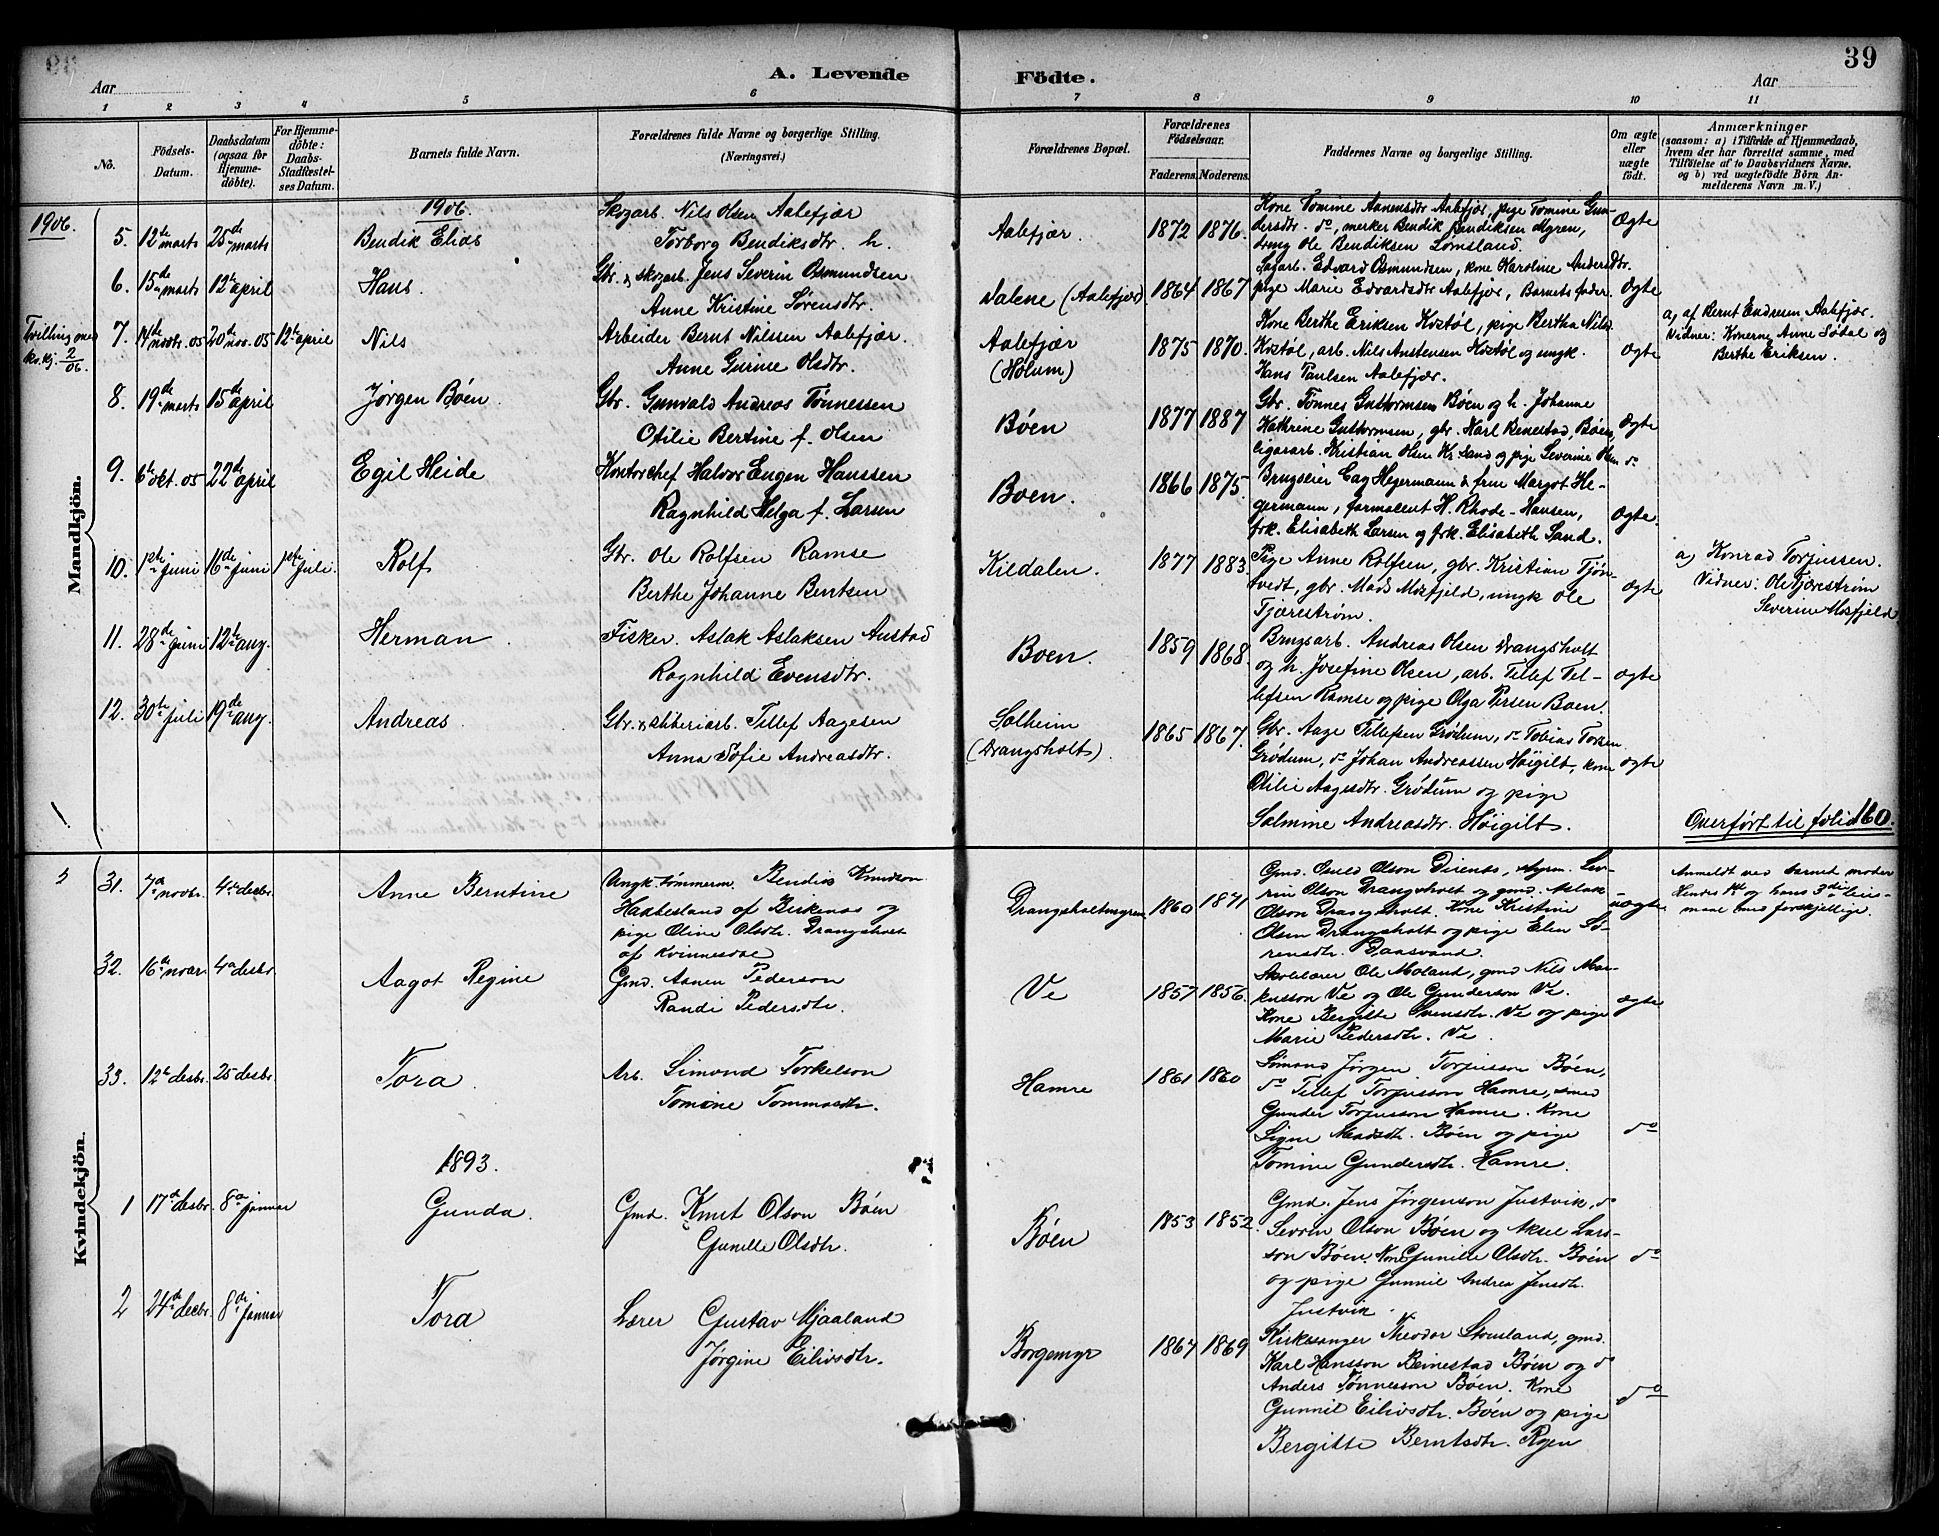 39
A. Levende Födte.
Aar Aar
1 2 3 4 5 6 7 8 9 10 11
No.
Födsels-Datum.
Daabsdatum (ogsaa for Hjemme-döbte).
For Hjemme-döbte: Daabs-Stadfæstel-ses Datum.
Barnets fulde Navn.
Forældrenes fulde Navne og borgerlige Stilling.
(Næringsvei.)
Forældrenes Bopæl.
Forældrenes Födselsaar.
Faderens. Moderens.
Faddernes Navne og borgerlige Stilling.
Om ægte eller uægte födt.
Anmærkninger
(saasom: a) i Tilfælde af Hjemmedaab, hvem der har forrettet samme, med Tilföielse af to Daabsvidners Navne, og b) ved uægtefödte Börn An-melderens Navn m. V.)
Mandkjön.
1906.
1906.
5. 12te marts 25de marts
Bendik Elias
Skogarb. Nils Olsen Aalefjær
Torborg Bendiksdtr. h.
Aalefjær.
1872 1876.
Kone Tomine Aanensdtr Aalefjær, pige Tomine Gun-
dersdtr. do, merker Bendik Bendiksen Myren,
dreng Ole Bendiksen Lömsland.
Ægte
6. 15de marts 12te april
Hans.
Gbr. & skogarb. Jens Severin Osmundsen
Anne Kristine Sørensdtr.
Dalene (Aalefjær)
1864 1867
Sagarb. Edvard Osmundsen, kone Karoline Andersdtr.
pige Marie Edvardsdtr Aalefjær, Barnets fader.
Ægte
Tvilling med
kv.kj. 2/06.
7. 14de novbr. 05 20de nov. 05 12te april
Nils
Arbeider Bernt Nilssen Aalefjær.
Anne Gurine Olsdtr.
Aalefjær
(Holum)
1875 1870.
Kone Berthe Eriksen Kostøl, pige Bertha Nils.
Kostøl, arb. Nils Anstensen Kostøl og ungk.
Hans Paulsen Aalefjær.
Ægte
a) af Bernt Endresen Aalefjær.
Vidner: Konerne Anne Sødal og
Berthe Eriksen.
8. 19de marts 15de april
Jørgen Böen.
Gbr. Gunvald Andreas Tönnessen
Otilie Bertine f. Olsen
Böen
1877 1887
Gbr. Tönnes Guttormsen Böen og h. Johanne
Kathrine Guttormsen, gbr. Karl Benestad, Böen,
ligesarb. Kristian Olsen Kr.Sand og pige Severine Olsen do
Ægte
9. 6te okt. 05 22de april
Egil Heide
Kontorchef Halvor Eugen Hanssen
Ragnhild Helga f. Larsen
Boen.
1866 1875.
Brugseier Cay Hegermann & frue Margot He-
germann, formalent H. Rhode-Hansen,
frk. Elisabeth Larsen og frk. Elisabeth Sand.
Ægte.
10. 1ste juni 16de juni 1ste juli.
Rolf
Gbr. Ole Rolfsen Ramse
Berthe Johanne Bentsen
Kildalen.
1877 1883.
Pige Anne Rolfsen, gbr. Kristian Tjön-
vedt, gbr. Mads Mosfjeld, ungk Ole
Tjærestrøm.
Ægte
a) Konrad Torjussen.
Vidner: Ole Tjærestrøm
Severine Mosfjeld
11. 28de juni 12te aug.
Herman
Fisker. Aslak Aslaksen Austad
Ragnhild Evensdtr.
Boen.
1859 1868.
Brugsarb. Andreas Olsen Drangsholt
og h. Josefine Olsen, arb. Tellef Tel-
lefsen Ramse og pige Olga Persen Boen.
ægte
12. 30te juli 19de aug.
Andreas.
Gbr. & sliberiarb. Tellef Aagesen
Anna Sofie Andreasdtr.
Solheim
(Drangsholt)
1865 1867.
Gbr. Aage Tellefsen Grödum, do Tobias Torsen
Grödum, do Johan Andreassen Höigilt, kone
Otilie Aagesdtr. Grödum og pige
Salmine Andreasdtr. Höigilt.
ægte
Overfört til folio 160.
Kvindekjön.
31. 7de novbr. 4de desbr.
Anne Berntine
Ungk. tömmerm. Bendix Knudson
Haabesland af Birkenæs og
pige Oline Olsdtr. Drangsholt
af Kvinnesdal
Drangsholtmyren
1860 1871
Gmd. Olson Drangsholt og gmd. Aslak
Olson Drangsholt. Kone Kristine
Olsen Drangsholt og pige Elen Sö-
rensdtr. Daasvand.
uægte
Anmeldt ved barnet moder
Hendes 1ste og hans 3die leier-
maal med forskjellige.
32. 16de novbr. 4de desbr.
Aagot Regine
Gmd. Aanen Pederson
Randi Pedersdtr.
Ve
1857 1856.
Skolelærer Ole Moland, gmd Nils Mar-
kusson Ve og Ole Gunderson Ve.
Kone Bergitte Svensdtr. Ve og pige
Marie Pedersdtr. Ve.
ægte
33. 12te desbr. 25 desbr.
Tora.
Arb. Simond Torkelson
Tomine Tommasdtr.
Hamre
1861 1860
Sömand Jörgen Torjusson Böen,
do Tellef Torjusson Hamre, smed
Gunder Torjusson Hamre. Kone
Signe Madsdtr. Böen og pige
Tomine Gundersdtr. Hamre.
do
1893.
1 17de desbr. 8de januar
Gunda.
Gmd. Knut Olson Böen
Gunille Olsdtr.
Böen
1853 1852.
Gmd. Jens Jörgenson Justvik, do
Olson Böen og Aksel Lars-
son Böen. Kone Gunille Olsdtr. Böen
og pige Gunnil Andrea Jensdtr.
Justvik.
do
2 24de desbr. 8de januar
Tora
Lærer Gustav Mjaaland
Jörgine Eilivsdtr.
Borgemyr
1867 1869
Kirkesanger Theodor Stensland, gmd.
Karl Hansson Beinestad Böen og do
Anders Tönnesson Böen. Kone
Gunnil Eilivsdtr. Böen og pige
Bergitte Berntsdtr. Ryen
do